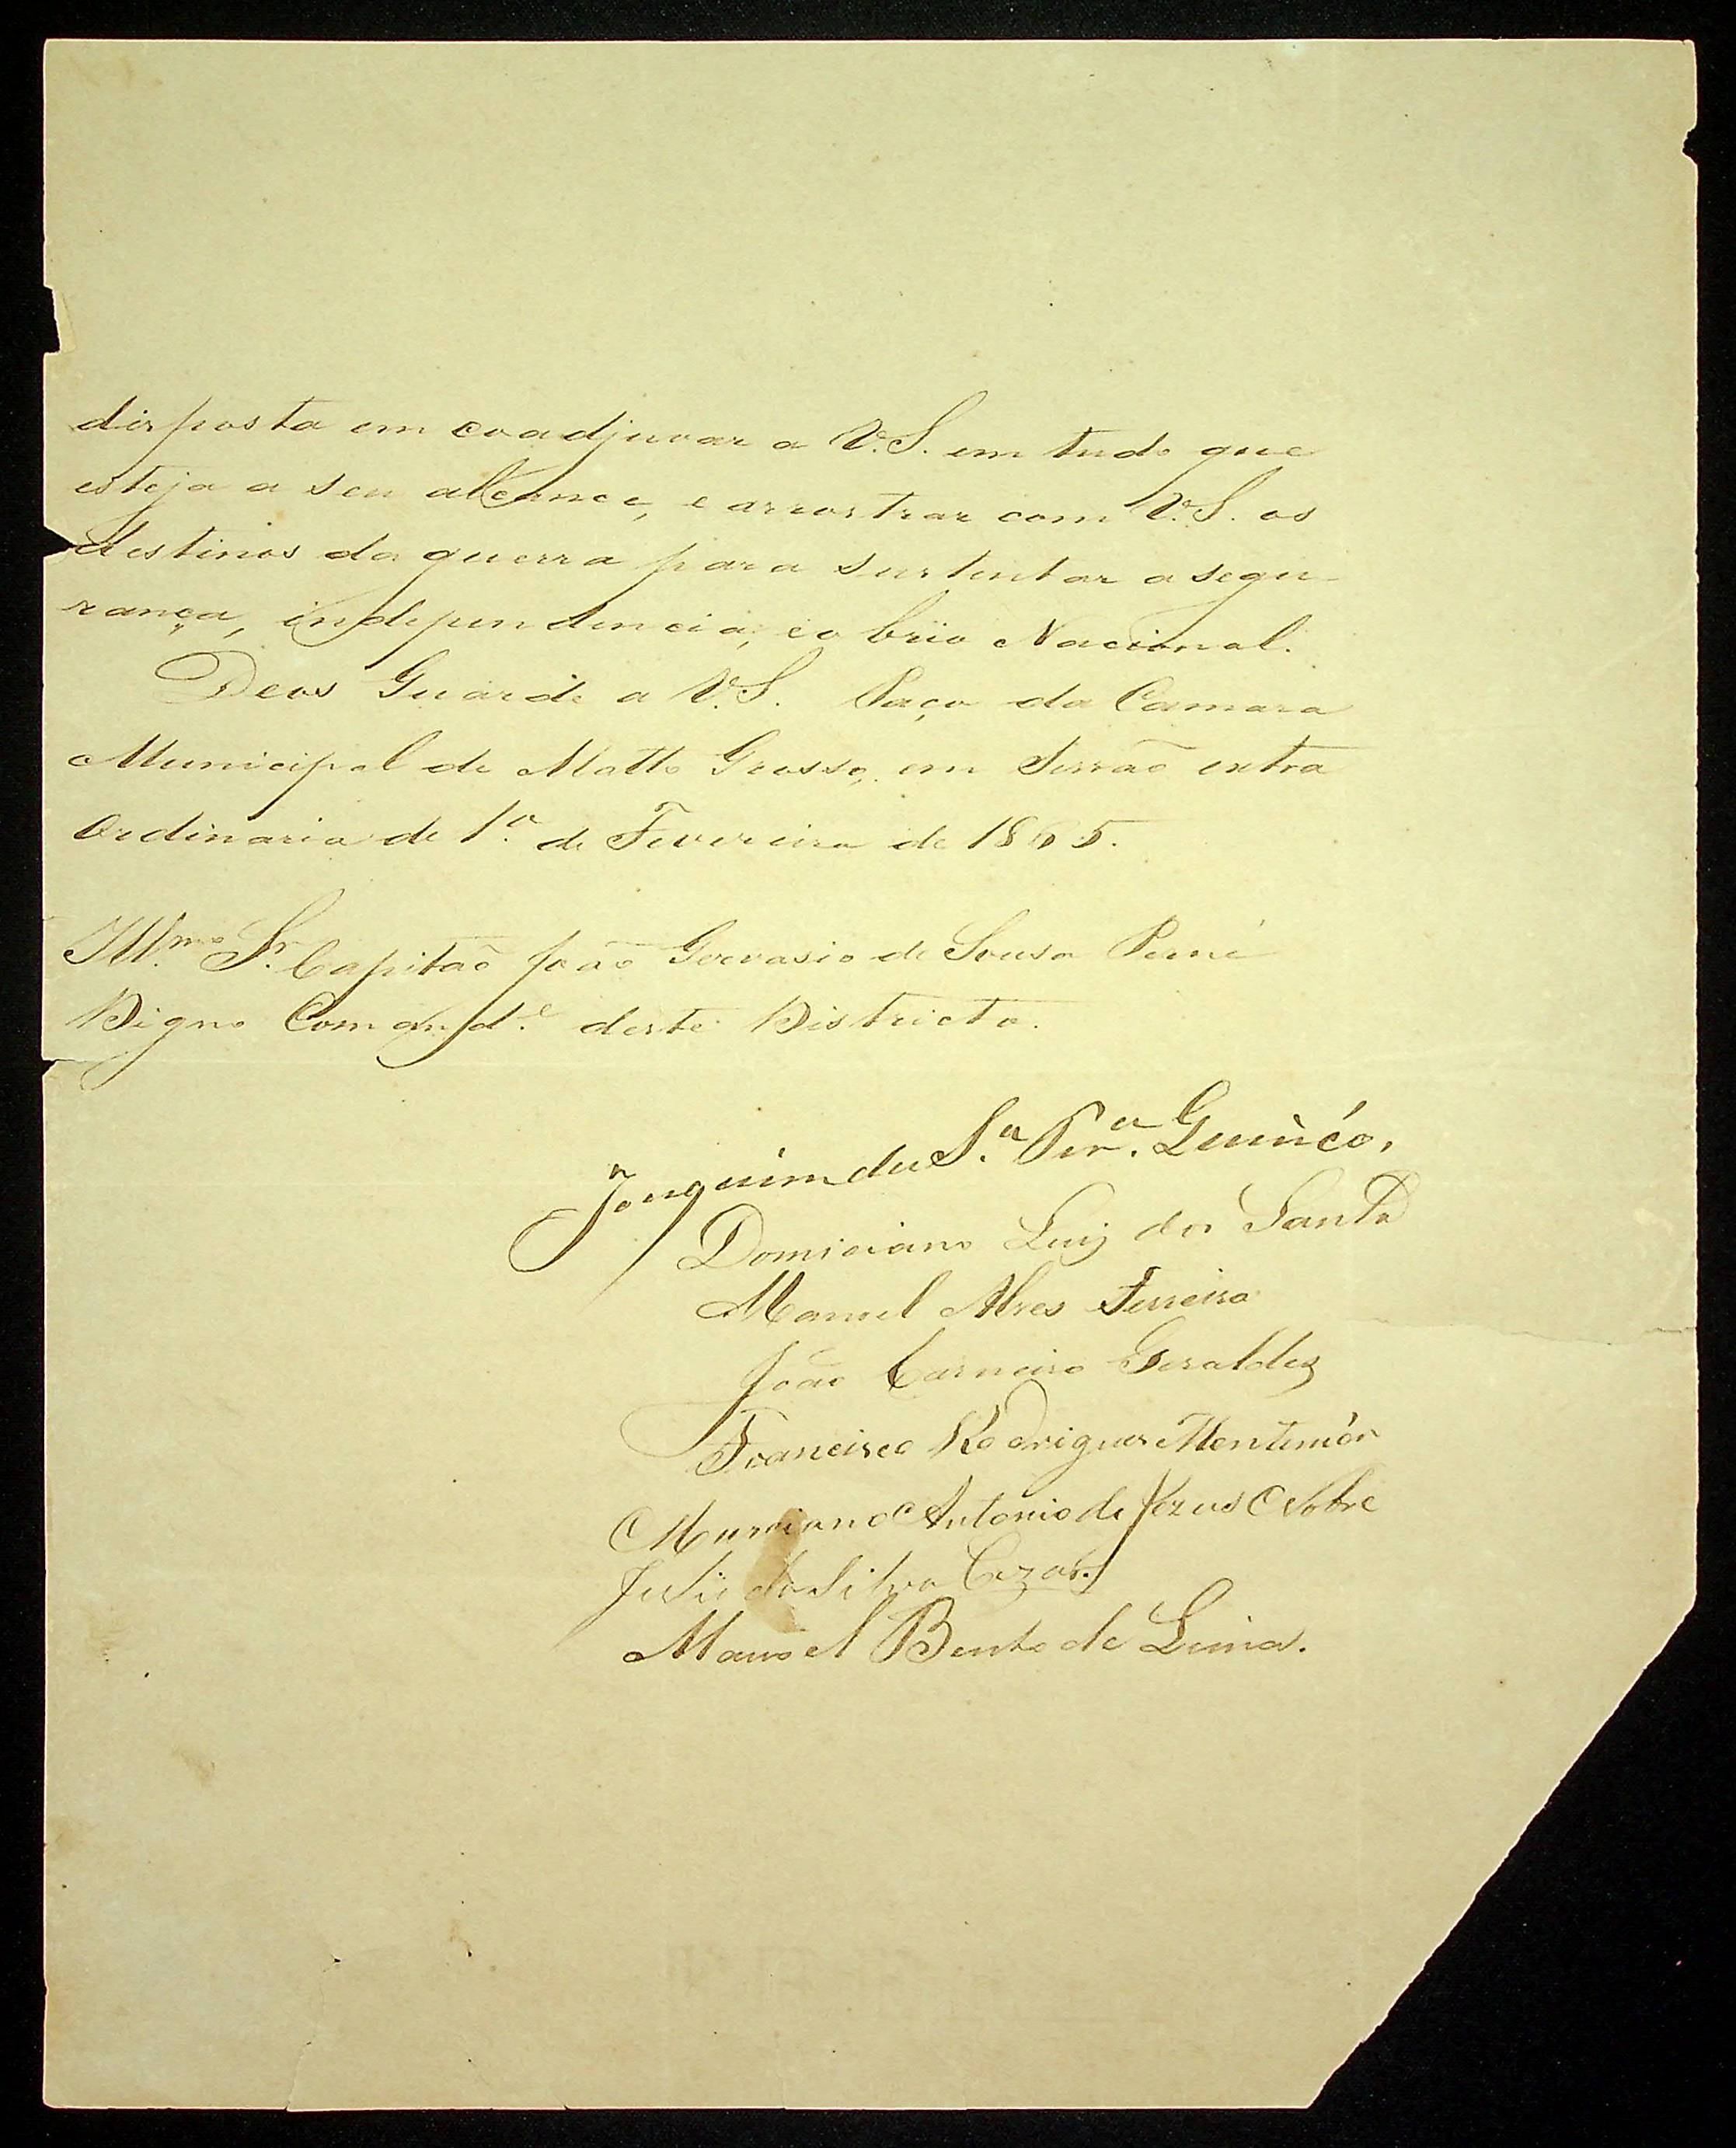 disposta em coadjuvar a V.S. em tudo que
esteja a seu alcance, e arrostrar com V.S. os
destinos da guerra para sustentar a segu-
rança, independencia, e o brio Nacional.
Deos Guarde a V.S. Paço da Camara
Municipal de Matto Grosso, em Sessão extra
Ordinaria de 1º de Fevereiro de 1865.
Illmo Sr. Capitão João Gervasio de Sousa Perné
Digno Comand.e deste Districto.
Joaquim da S.a Per.a
Domiciano Luiz dos Santos
Manoel Alves Ferreira
João Carneiro Geraldes
Francisco Rodrigues Montemór
Antonio de Jezus Nobre
da Silva Cezar.
Manoel Bento de Lima.